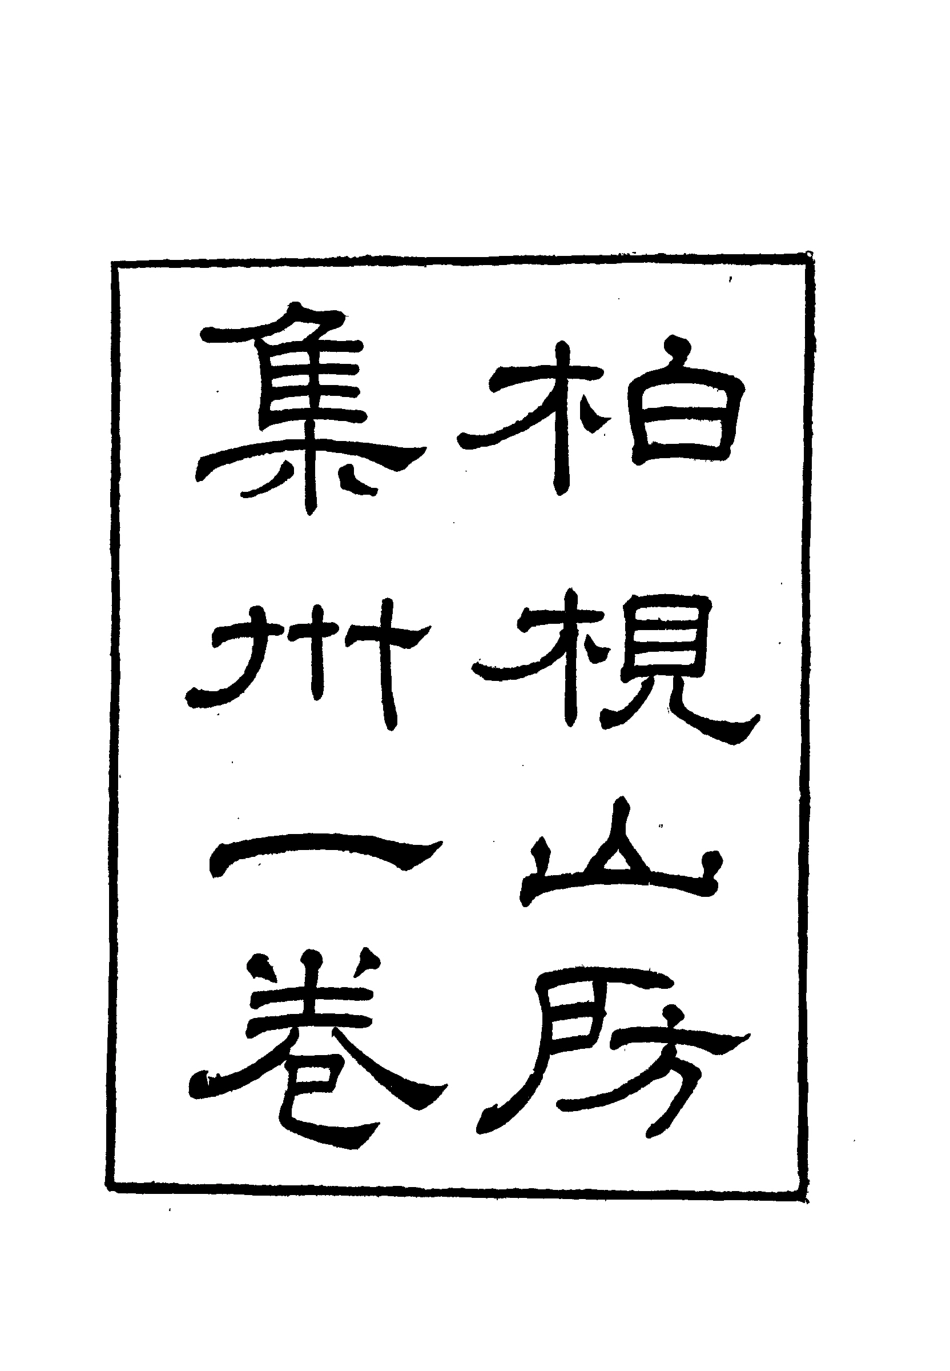 柏梘山房
集卅一卷